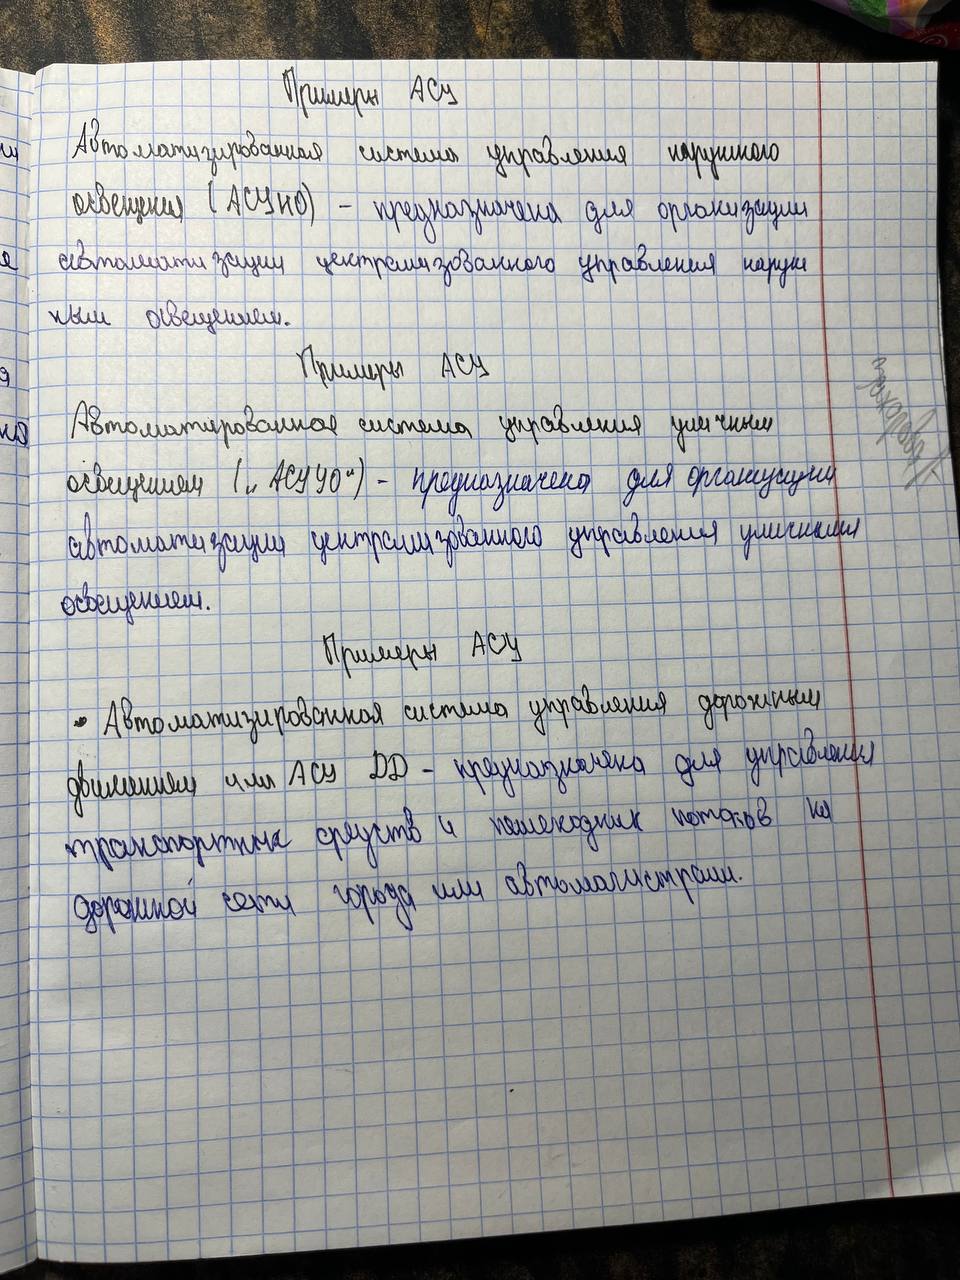 Примеры АСУ
Автоматизированная система управления наружного
освещения (АСУНО) - предназначена для организации
автоматизации централизованного управления наруж
ным освещением.
Примеры АСУ
Автоматированная система управления уличным
освещением („АСУУО“) - предназначена для организации
автоматизации централизованного управления уличным
освещением.
Примеры АСУ
• Автоматизированная система управления дорожным
движением или АСУ DD - предназначена для управления
транспортных средств и пешеходных потоков на
дорожной сети города или автомагистрали.